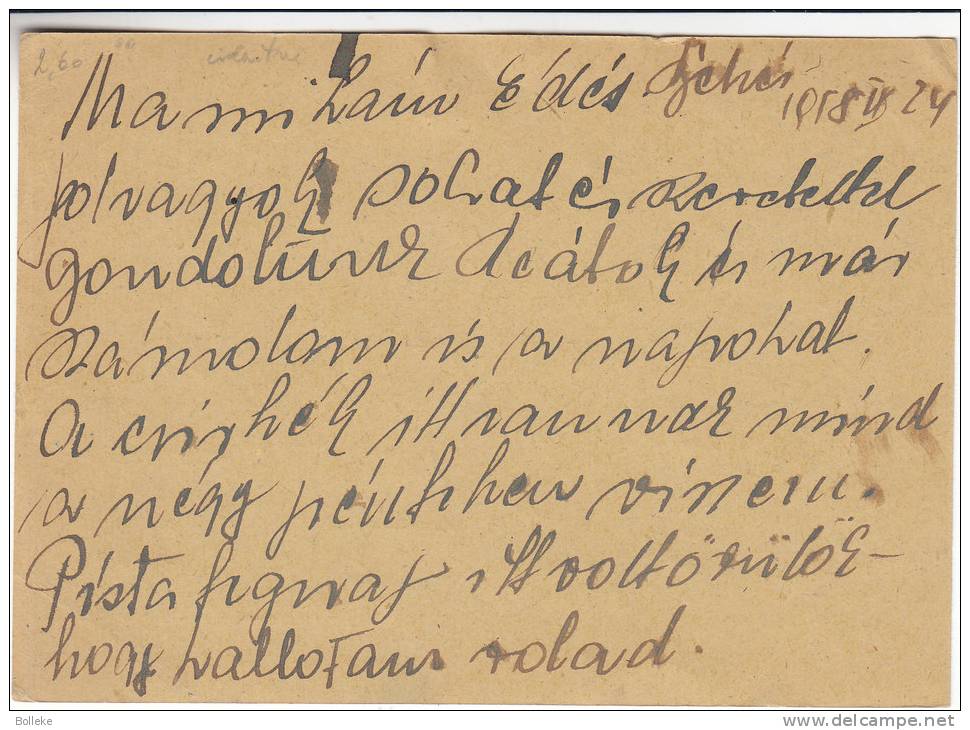 2,60
Mamikám Édés
1918 IX 24
jolvagyok sokat és szeretettel
gondolunk Reátok és már
számolom is a napokat.
A csirkék ittvannak mind
a négy péntken viszem.
Pista tegnap ittvolt örülök
hogy hallottam rolad.
Bolleke
www.delcampe.net